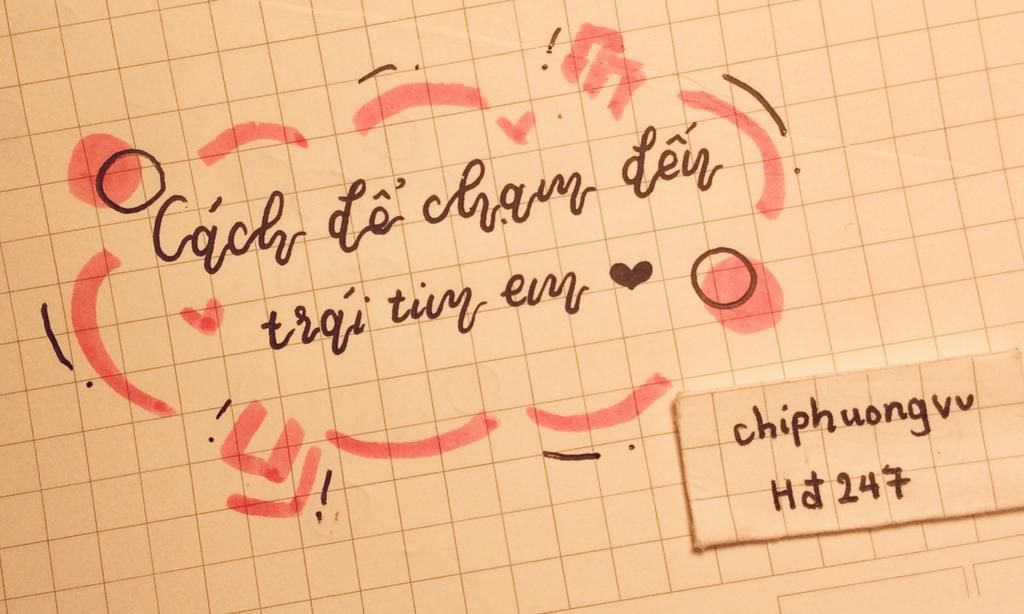 Cách để chạm đến
trái tim em
chiphuongvv
Hđ 247